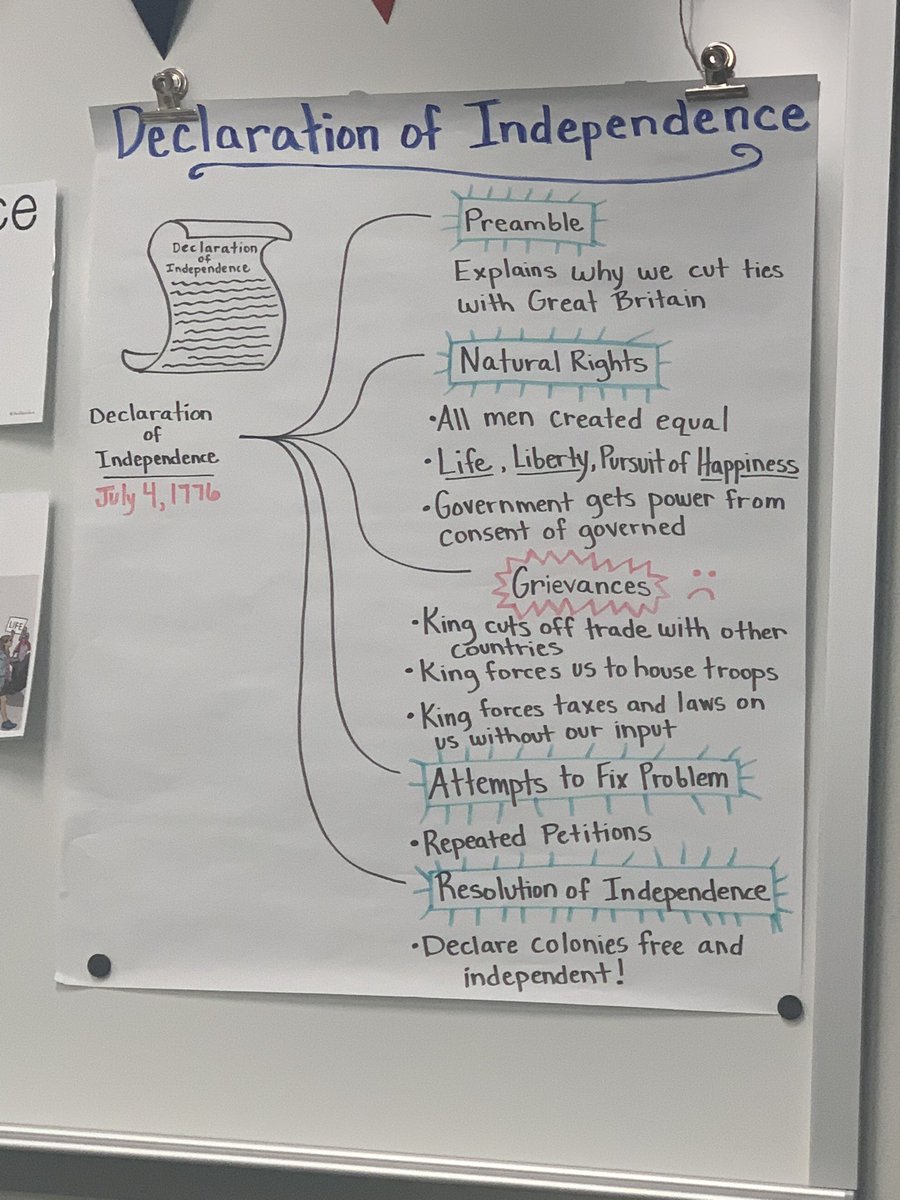 Declaration of Independence
ce
Declaration
of
Independence
Declaration
of
Independence
July 4, 1776
Preamble
Explains why we cut ties
with Great Britain
Natural Rights
•All men created equal
•Life, Liberty, Pursuit of Happiness
•Government gets power from
consent of governed
Grievances
•King cuts off trade with other
countries
•King forces us to house troops
•King forces taxes and laws on
us without our input
Attempts to Fix Problem
•Repeated Petitions
Resolution of Independence
•Declare colonies free and
independent!
LIFE